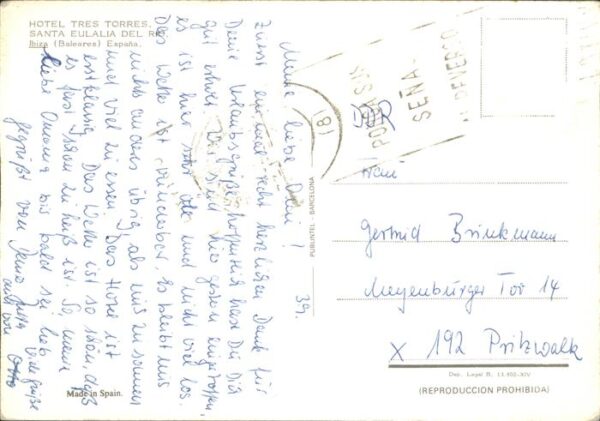 HOTEL TRES TORRES.
SANTA EULALIA DEL RIO
Ibiza (Baleares) España.
Meine liebe Omi!
Zuerst einmal recht herzlichen Dank für
Deine Urlaubsgrüße hast Du Dich
gut erholt. Wir sind hier gestern eingetroffen,
es ist hier sehr und nicht viel los.
Das Wetter ist wunderbar, es bleibt uns
nichts anderes übrig, als uns zu sonnen
und viel zu essen. Das Hotel ist
erstklassig. Das Wetter ist so schön, daß
es fast schon zu heiß ist. So, meine
liebe Omama bis bald sei lieb
gegrüßt von Deiner
viele Grüße
auch von Otto
Made in Spain.
PUBLINTEL - BARCELONA
PONGA SUS
SEÑA
Frau
Gertrud Brinkmann
Meyenburger Tor 14
X 192 Pritzwalk
39.
Dep. Legal B. 13.602-XIV
(REPRODUCCION PROHIBIDA)